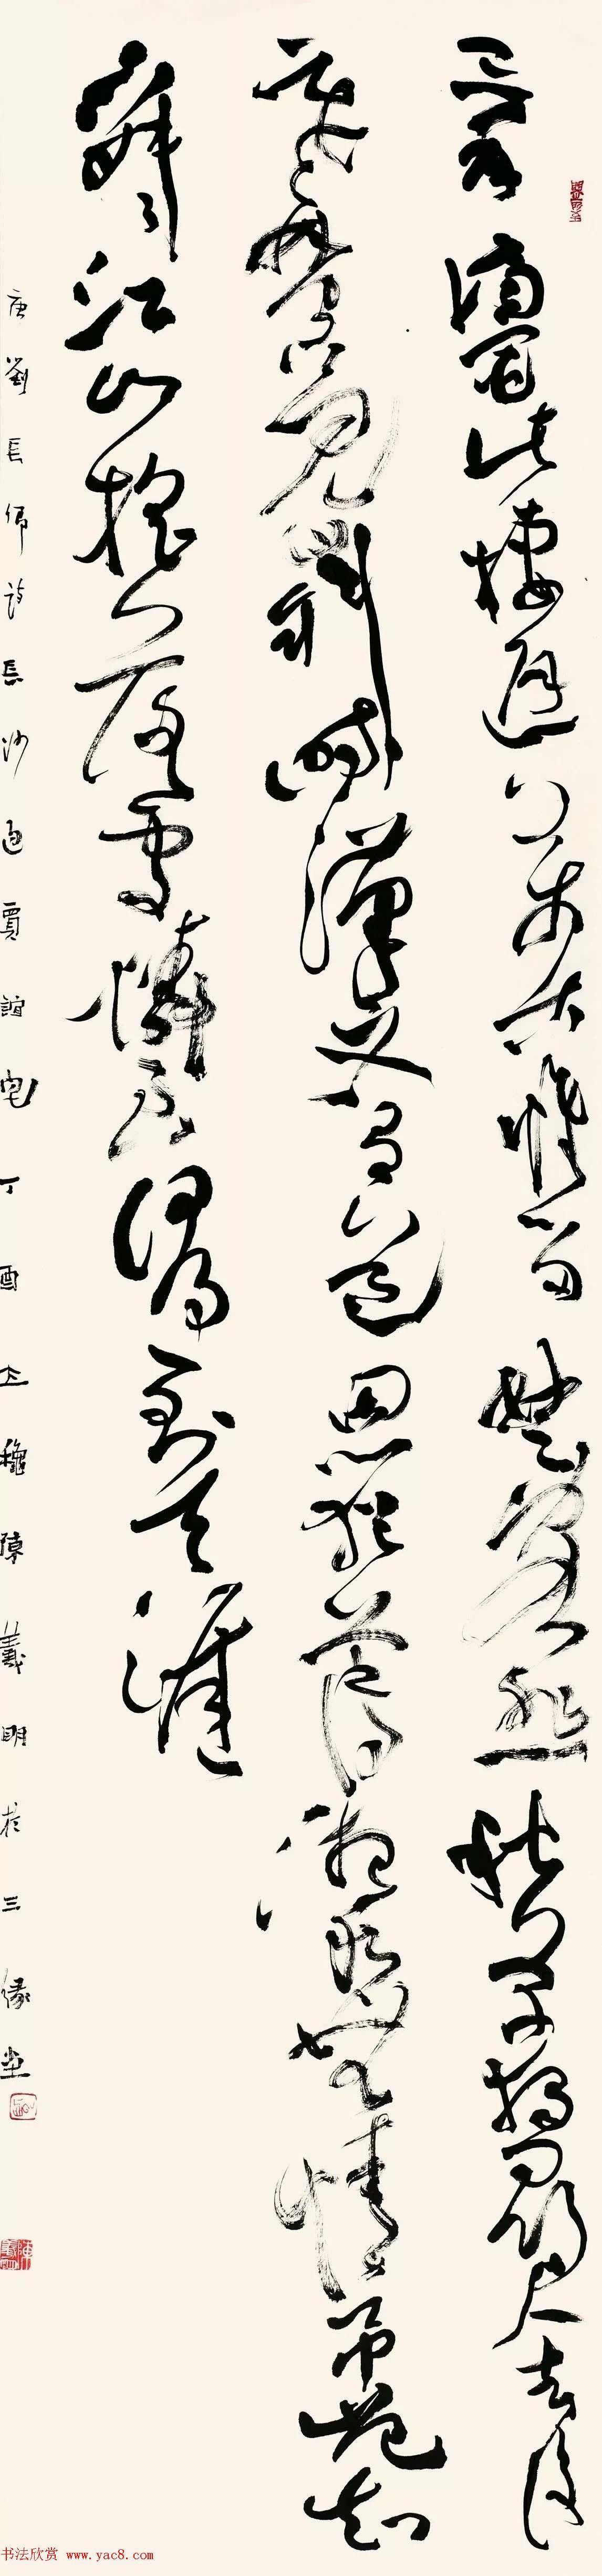 三年謫宦此棲遲万古惟留楚客悲秋草獨尋人去後
寒林空見日斜時漢文有道恩猶薄湘水無情弔豈知
寂寂江山搖落處憐君何事到天涯
唐劉長卿詩長沙過賈誼宅丁酉立穐陳義明於三緣堂
书法欣赏 www.yac8.com